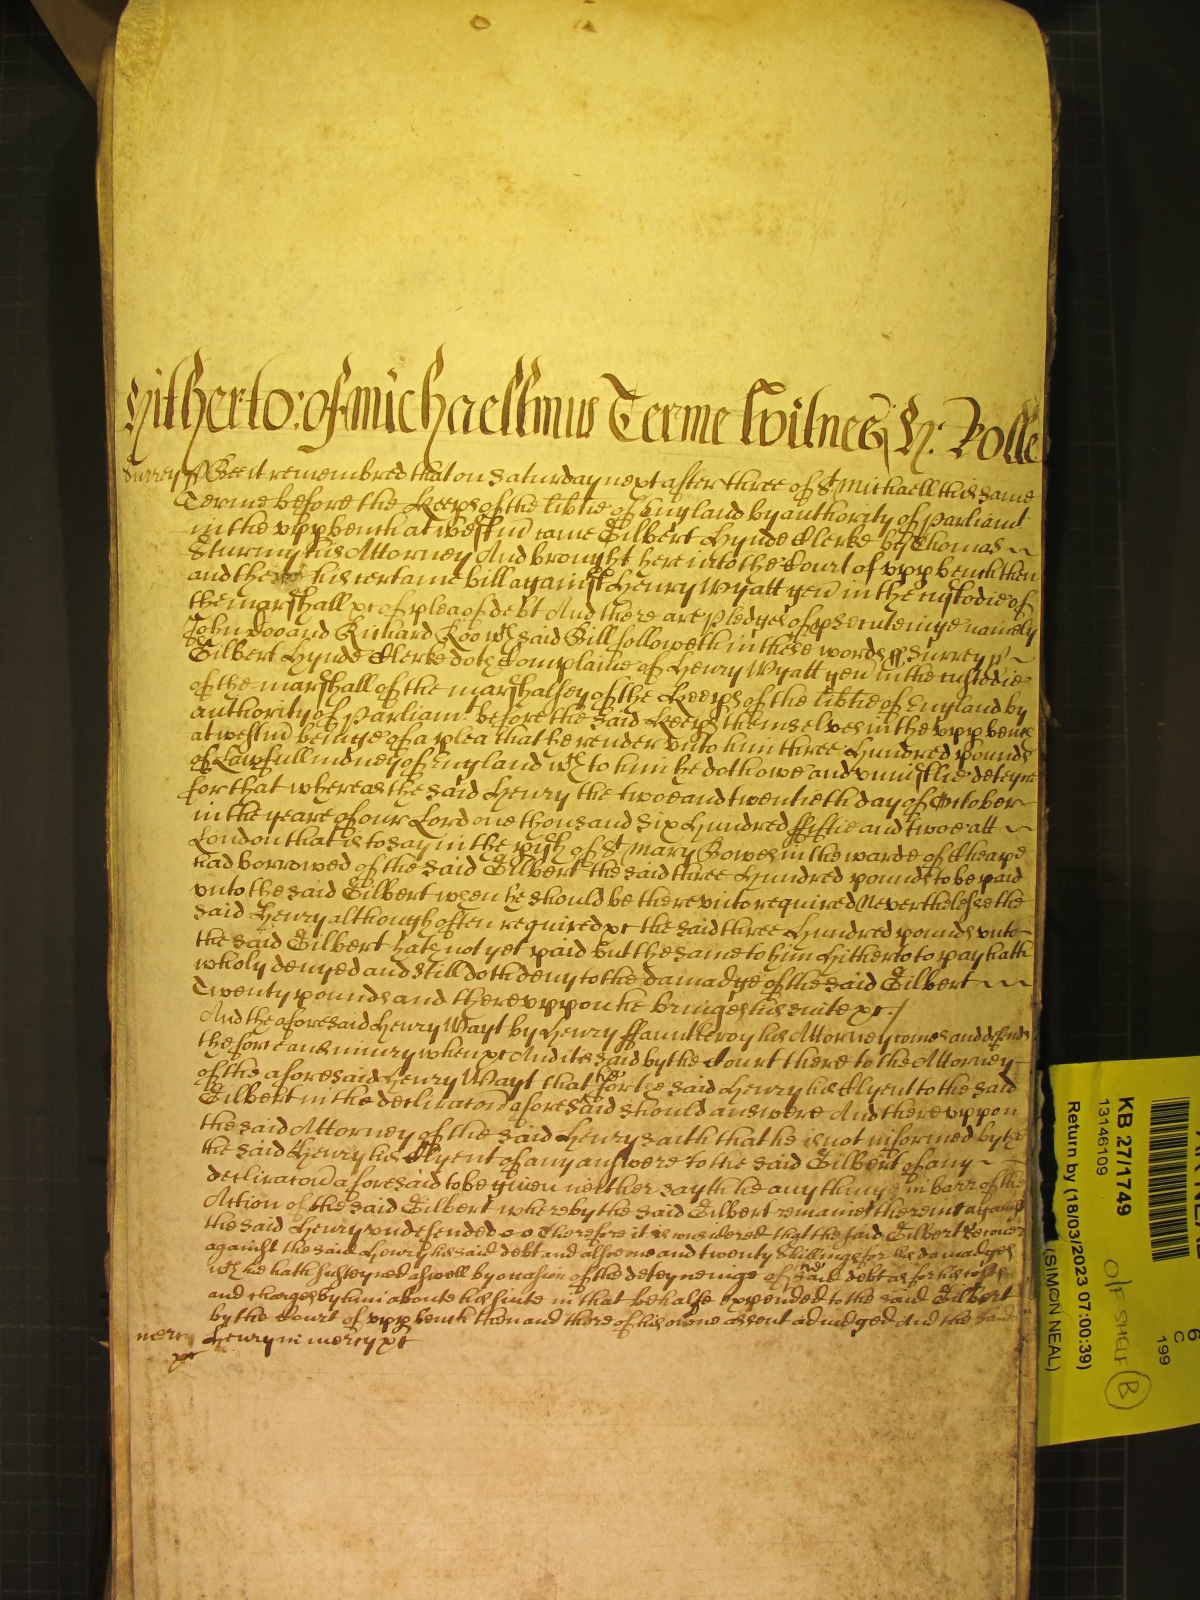 Hitherto: of Michaellmus Terme Witnes H: Rolle
Surrey ss Bee it remembred that on Saturday next after three of St Michaell this same
Terme before the Keeps of the libtie of England by authority of parliamt
in the upp bench at westmr came Gilbert Hynde Clerke by Thomas
Sturmy his Attorney And brought here into the Court of upp bench then
and there his certaine bill against Henry Wyatt yeo in the custodie of
the marshall &c of plea of debt And there are pledges of psecuteinge namely
John Doo and Richard Roo wch said Bill followeth in these words ss Surrey ss
Gilbert Hynde Clerke doth Complaine of Henry Wyatt yeo in the custodie
of the marshall of the marshalsey of the Keeps of the libtie of England by
authority of Parliamt before the said Keeps themselves in the upp bench
at westmr beinge of a plea that he render unto him three Hundred pounds
of Lawfull money of England wch to him he doth owe and uniustlie deteyne
for that whereas the said Henry the twoe and twentieth day of October
in the yeare of our Lord one thousand six Hundred ffiftie and twoe att
London that is to say in the pish of St Mary Bowe in the warde of Cheape
had borrowed of the said Gilbert the said three Hundred pounds to be paid
unto the said Gilbert when he should be there unto required Neverthelesse the
said Henry although often required &c the said three Hundred pounds unto
the said Gilbert hath not yet paid but the same to him Hitherto to pay hath
wholy denyed and still doth deny to the damadge of the said Gilbert
Twenty pounds and thereuppon he bringes his suite &c /
And the aforesaid Henry Wayt by Henry ffauntleroy his Attorney comes and defends
the force and iniury when &c And it is said by the Court there to the Attorney
of the aforesaid Henry Wayt that he for the said Henry his Clyent to the said
Gilbert in the declaracon aforesaid should answere And thereuppon
the said Attorney of the said Henry saith that he is not informed by the
the said Henry his Clyent of any answere to the said Gilbert of any
declaracon aforesaid to be given neither sayth he any thing in barr of the
Action of the said Gilbert whereby the said Gilbert remaines therein against
the said Henry undefended Therefore it is considered that the said Gilbert Recover
against the said Henry his said debt and alsoe one and twenty shillings for his damadges
wch he hath susteyned aswell by occasion of the deteyneinge of the said debt as for his costs
and charges by him aboute his suite in that behalfe expended to the said Gilbert
by the Court of upp bench then and there of his owne assent adiudged And the said
mercy &c
Henry in mercy &c
KB 27/1749
13146109
Return by (18/03/2023 07:00:39)
(SIMON NEAL)
Off SHELF B
6
C
199